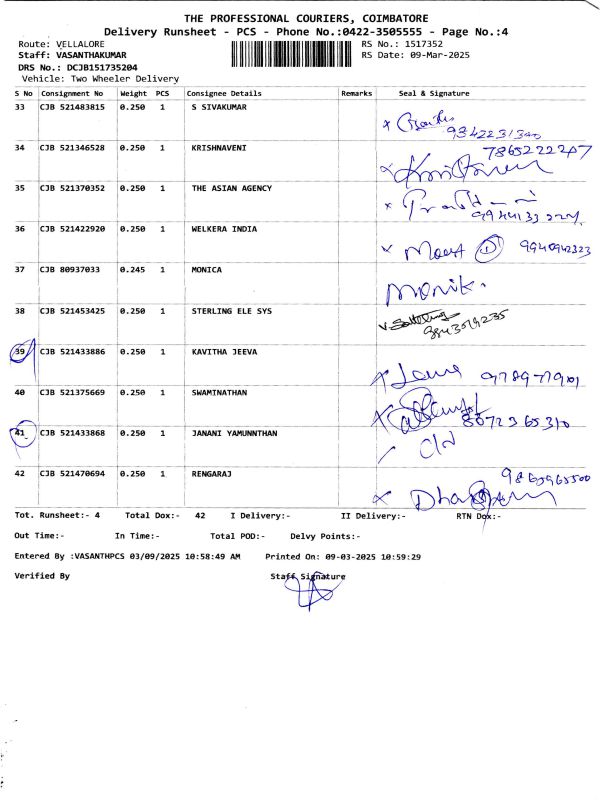 THE PROFESSIONAL COURIERS, COIMBATORE
Delivery Runsheet - PCS - Phone No.:0422-3505555 - Page No.:4
Route: VELLALORE RS No.: 1517352
Staff: VASANTHAKUMAR RS Date: 09-Mar-2025
DRS No.: DCJB151735204
Vehicle: Two Wheeler Delivery
S No Consignment No Weight PCS Consignee Details Remarks Seal & Signature
33 CJB 521483815 0.250 1 S SIVAKUMAR
9342231340
34 CJB 521346528 0.250 1 KRISHNAVENI 7865222247
35 CJB 521370352 0.250 1 THE ASIAN AGENCY
36 CJB 521422920 0.250 1 WELKERA INDIA
9940942323
37 CJB 80937033 0.245 1 MONICA
Monik.
38 CJB 521453425 0.250 1 STERLING ELE SYS
39 CJB 521433886 0.250 1 KAVITHA JEEVA
40 CJB 521375669 0.250 1 SWAMINATHAN
8072365310
41 CJB 521433868 0.250 1 JANANI YAMUNNTHAN
42 CJB 521470694 0.250 1 RENGARAJ
9865965500
Tot. Runsheet:- 4 Total Dox:- 42 I Delivery:- II Delivery:- RTN Dox:-
Out Time:- In Time:- Total POD:- Delvy Points:-
Entered By :VASANTHPCS 03/09/2025 10:58:49 AM Printed On: 09-03-2025 10:59:29
Verified By Staff Signature